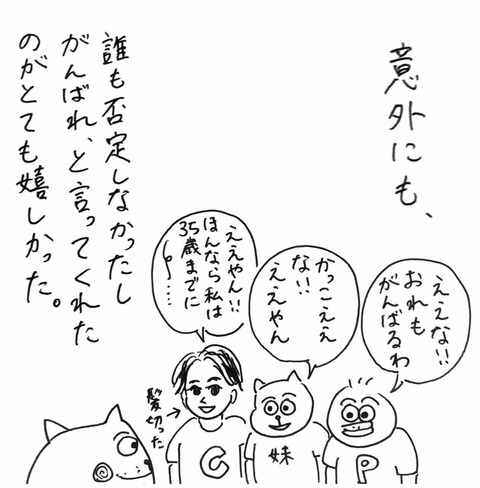 意外にも、
ええな!!
おれも
がんばるわ
かっこええ
な!!
ええやん
ええやん!!
ほんなら私は
35歳までに
〜……
誰も否定しなかったし
がんばれ、と言ってくれた
のがとても嬉しかった。
髪切った
C
妹
P